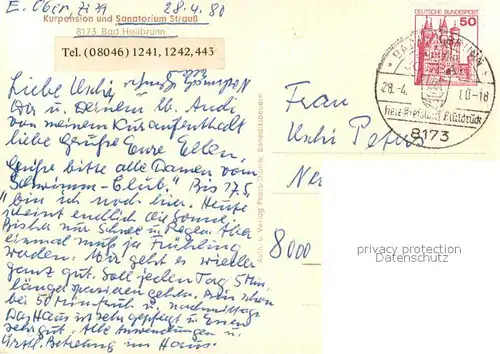 E. Ober, Zi 39
28.4.80
Kurpension und Sanatorium Strauß
8173 Bad Heilbrunn
Tel. (08046) 1241, 1242, 443
Liebe Uschi
Dir u. Deinem lb. Andi
von meinem Kuraufenthalt
liebe Grüße Eure Ellen,
Grüße bitte alle Damen vom
"Schwimm-Club". Bis 17.5.
bin ich noch hier. Heute
scheint endlich die Sonne.
Bisher nur Schnee u. Regen. Aber
einmal muß ja Frühling
werden. Mir geht es wieder
ganz gut. Soll jeden Tag 5 Min.
länger spazieren gehen. Bin schon
bei 50 Minuten früh u. nachmittags.
Das Haus ist sehr gepflegt u. Essen
sehr gut. Alle Anwendungen u.
ärztl. Betreuung im Haus.
Aufn. u. Verlag Photo-Thoma, Benediktbeuern
DEUTSCHE BUNDESPOST
50
BAD HEILBRUNN
28.-4. 80-18
8173
Frau
Uschi Peter
8000
privacy protection
AnsichtskartenVersand.com